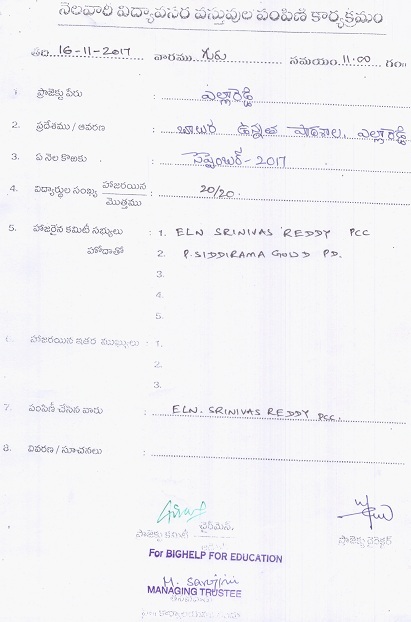 నెలవారి విద్యావసర వస్తువుల పంపిణి కార్యక్రమం
తేది 16-11-2017 వారము గురు సమయం 11:00 గం
1. ప్రాజెక్టు పేరు : ఎల్లారెడ్డి
2. ప్రదేశము / ఆవరణ : బాలుర ఉన్నత పాఠశాల, ఎల్లారెడ్డి
3. ఏ నెల కొఱకు : సెప్టెంబర్ - 2017
4. విద్యార్థుల సంఖ్య హాజరయిన / మొత్తము : 20/20
5. హాజరైన కమిటీ సభ్యులు : 1. ELN SRINIVAS REDDY PCC
హోదాతో 2. P. SIDDIRAMA GOUD PD.
3.
4.
5.
6. హాజరయిన ఇతర ముఖ్యులు : 1.
2.
3.
7. పంపిణీ చేసిన వారు : ELN. SRINIVAS REDDY PCC.
8. వివరణ / సూచనలు :
ఛైర్‌మెన్,
ప్రాజెక్టు కమిటీ ప్రాజెక్టు డైరెక్టర్
For BIGHELP FOR EDUCATION
M. Sarojini
MANAGING TRUSTEE